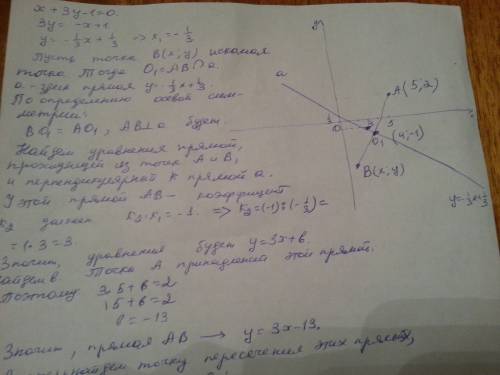 x + 3y - 1 = 0.
3y = -x + 1.
y = -1/3 x + 1/3 => k₁ = -1/3
Пусть точка B(x; y) искомая
точка. Тогда O₁ = AB ∩ a.
a - здек прямая y = -1/3 x + 1/3.
По определению осевой сим-
метрии:
BO₁ = AO₁, AB ⊥ a будет.
Найдем уравнения прямой,
проходящей из точек A и B,
и перпендикулярной к прямой a.
У этой прямой AB - коэффицент
k₂ должен k₂·k₁ = -1. => k₂ = (-1):(-1/3) =
= 1·3 = 3.
Значит, уравнения будет y = 3x + b.
Найдем b. Точка A принадлежит этой прямой.
Поэтому: 3·5 + b = 2
15 + b = 2
b = -13
Значит, прямая AB → y = 3x - 13.
найдем точку пересечения этих прямых,
y
a
A(5; 2)
O
O₁ (4; -1)
B(x; y)
y = -1/3 x + 1/3